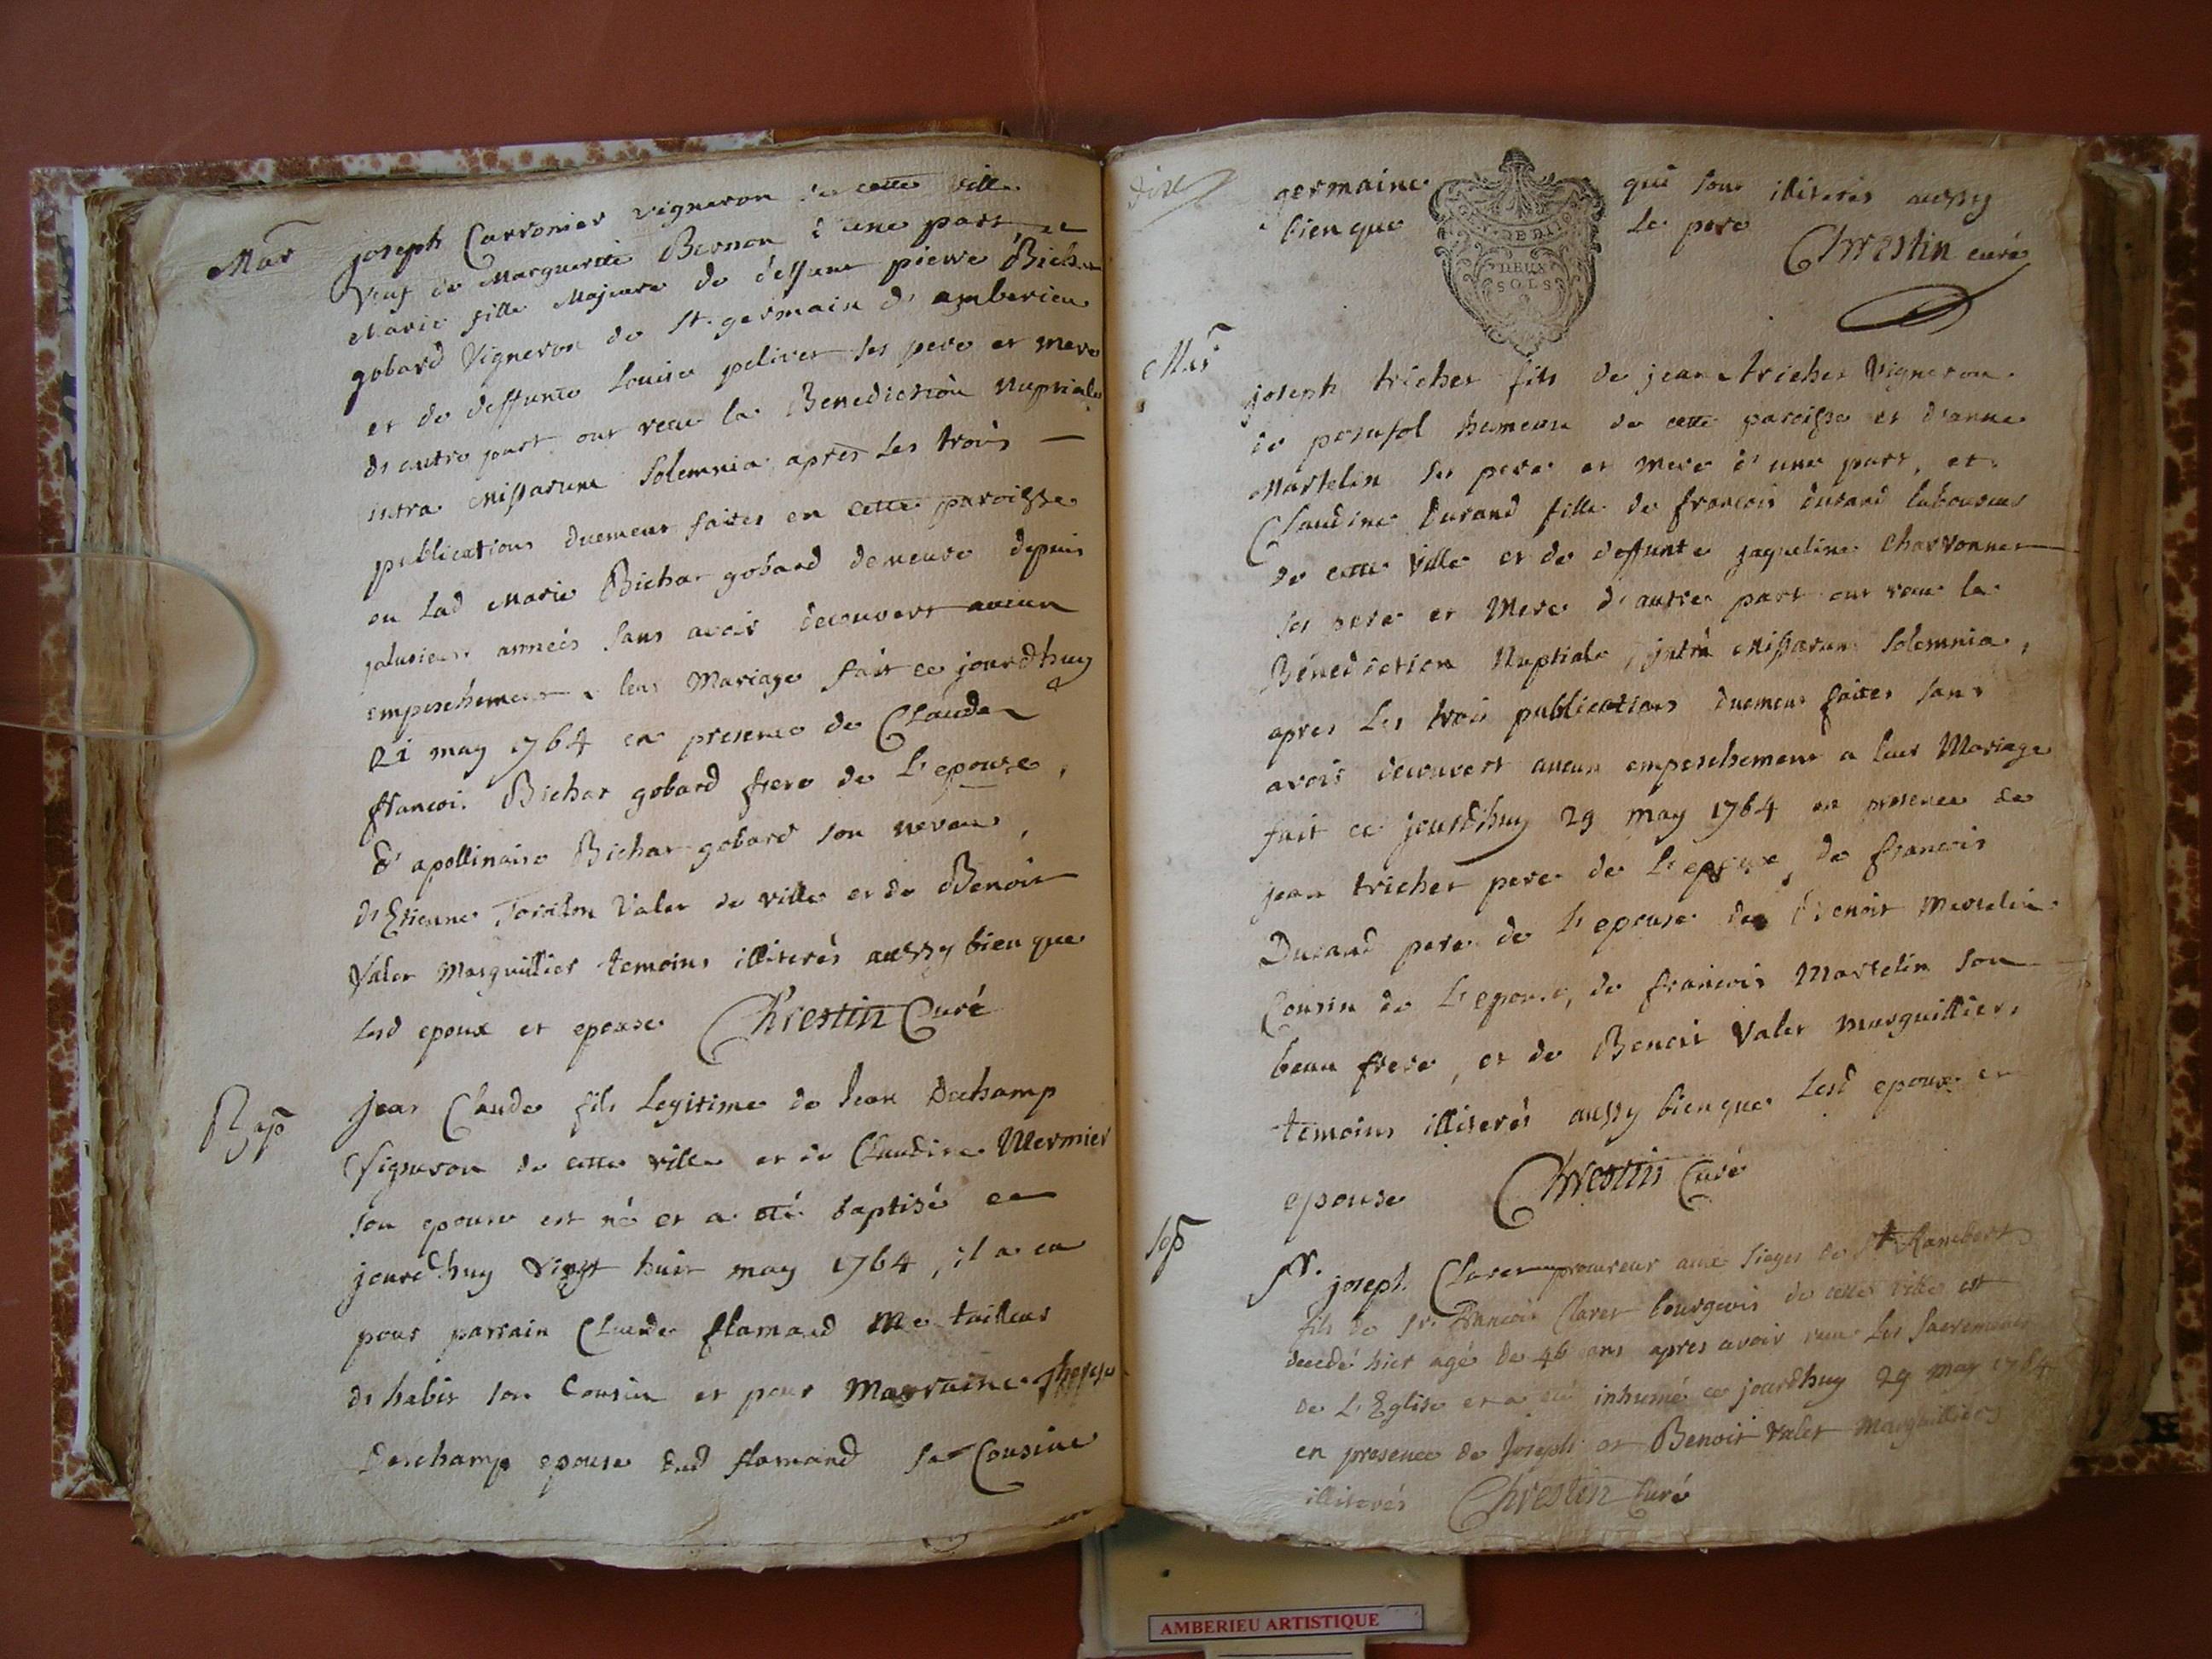 Mar
joseph Carronier vigneron de cette ville
veuf de Marguerite Bernon d'une part, et
Marie fille Majeure de deffunt pierre Bichar
gobard Vigneron de St. germain d'amberieu
et de deffunte Louise pelivet ses pere et mere
d'autre part ont receu la Benediction Nuptiale
intra Missarum Solemnia apres Les trois
publications duement faites en cette paroisse
ou Lad Marie Bichar gobard demeure depuis
plusieurs années sans avoir decouvert aucun
empeschement a leur Mariage fait ce jourdhuy
21 may 1764 en presence de Claude
francois Bichar gobard frere de L'epouse,
d'apollinaire Bichar gobard son neveu,
d'Etienne Valet de ville et de Benoit
Valet Marguillier temoins illiterés aussy bien que
Lesd epoux et epouse Chrestin Curé
Bap
Jean Claude fils Legitime de Jean Dechamp
Vigneron de cette ville et de Claudine Mermier
son epouse est né et a eté baptisé ce
jourdhuy vingt huit may 1764, il a eu
pour parrain Claude flamand Me tailleur
d'habit son Cousin et pour Marraine
Deschamp epouse dud flamand sa Cousine
dix
germaine qui sont illiterés aussy
bien que Le pere
Chrestin curé
DEUX
SOLS
Mar
joseph trichet fils de jean trichet Vigneron
de hameau de cette paroisse et d'anne
Martelin ses pere et mere d'une part, et
Claudine Durand fille de francois durand laboureur
de cette ville et de deffunte jaqueline Charronnet
ses pere et Mere d'autre part ont receu la
Bénediction Nuptiale, intrà Missarum Solemnia,
apres Les trois publications duement faites sans
avoir decouvert aucun empeschement a leur Mariage
fait ce jourdhuy 29 may 1764 en presence de
jean trichet pere de L'epoux, de francois
Durand pere de L'epouse de Benoit Martelin
Cousin de L'epoux, de francois Martelin son
beau frere, et de Benoit Valet Marguillier,
temoins illiterés aussy bien que Lesd epoux et
epouse Chrestin Curé
Sep
Sr. joseph Claret procureur aux sieges de St Rambert
fils de Sr. francois Claret bourgeois de cette ville est
decedé hier agé de 46 ans apres avoir receu Les Sacrements
de L'Eglise et a eté inhumé ce jourdhuy 29 may 1764
en presence de Joseph et Benoit Valet Marguilliers
illiterés Chrestin Curé
AMBERIEU ARTISTIQUE